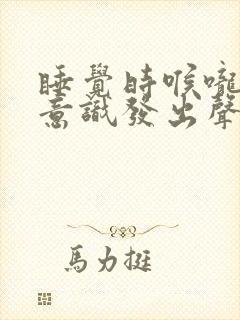 睡覺時喉嚨
意識發出聲
馬力挺